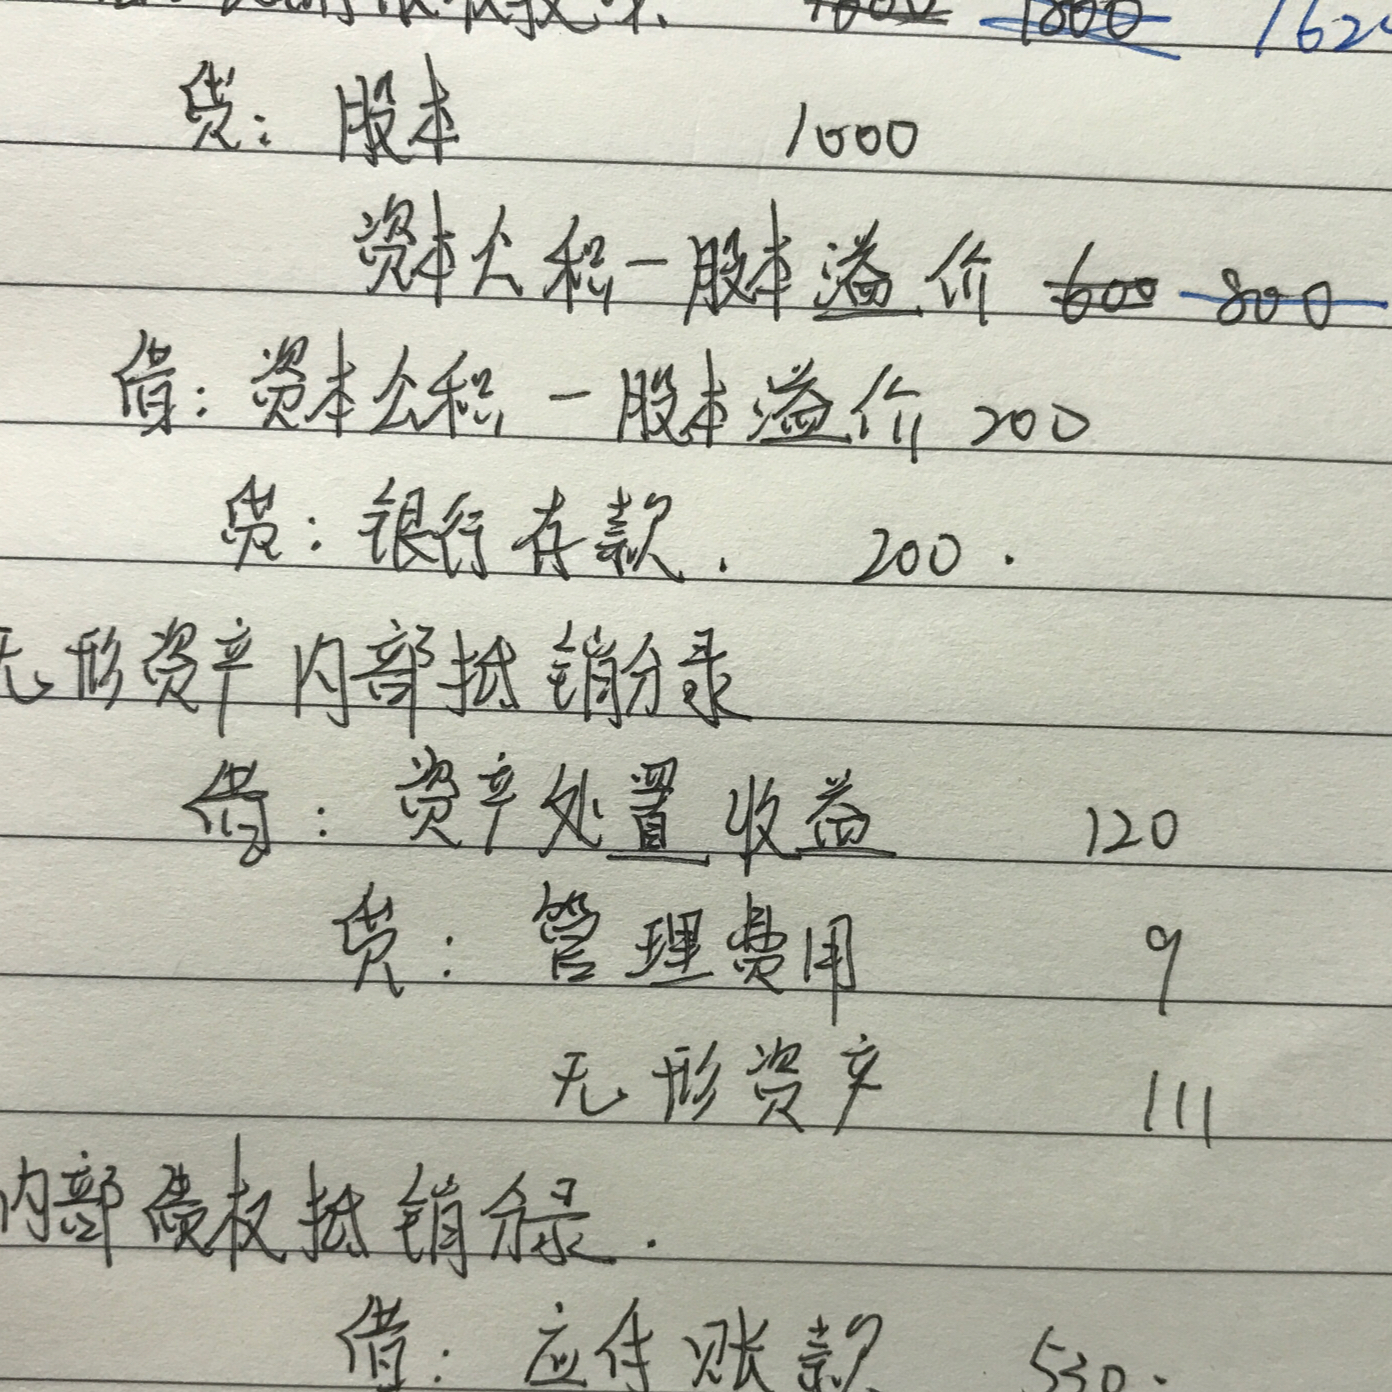 股权投资 1600 1800 162
贷：股本 1000
资本公积－股本溢价 600 800
借：资本公积－股本溢价 200
贷：银行存款. 200.
无形资产内部抵销分录
借：资产处置收益 120
贷：管理费用 9
无形资产 111
内部债权抵销分录.
借：应付账款 530.